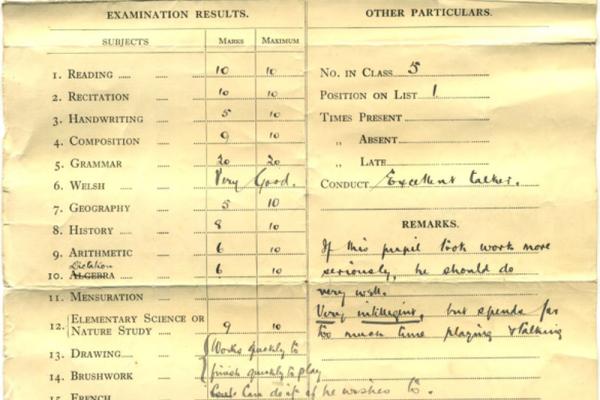 EXAMINATION RESULTS.
SUBJECTS MARKS MAXIMUM
1. READING 10 10
2. RECITATION 10 10
3. HANDWRITING 5 10
4. COMPOSITION 9 10
5. GRAMMAR 20 20
6. WELSH Very Good.
7. GEOGRAPHY 5 10
8. HISTORY 8 10
9. ARITHMETIC 6 10
Dictation
10. ALGEBRA 6 10
11. MENSURATION
12. ELEMENTARY SCIENCE OR
NATURE STUDY 9 10
13. DRAWING Works quickly to
14. BRUSHWORK finish quickly to play
15. FRENCH Can do it if he wishes to.
OTHER PARTICULARS.
NO. IN CLASS 5
POSITION ON LIST 1
TIMES PRESENT
„ ABSENT
„ LATE
CONDUCT Excellent talker.
REMARKS.
If this pupil took work more
seriously, he should do
very well.
Very intelligent, but spends far
too much time playing & talking